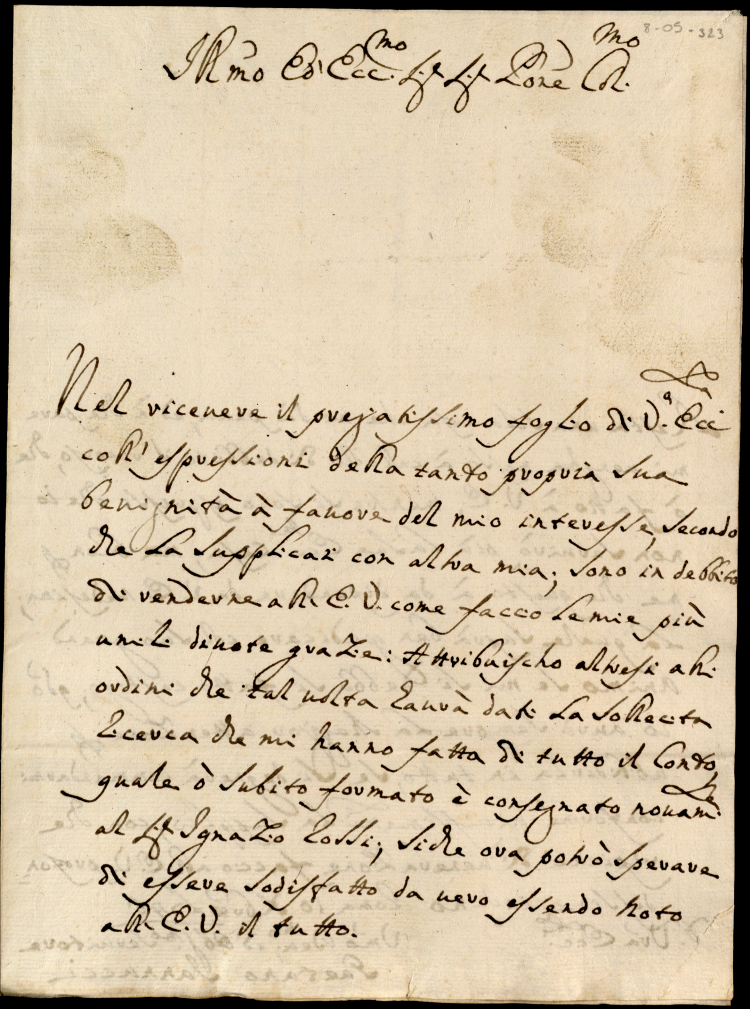 8-05-323
Ill.mo Ed Ecc.mo Sig.r Sig.r Prone Col.mo
Nel riceuere il pregiatissimo foglio di V.a Ecc.za
coll' espressioni della tanto propria sua
benignità à fauore del mio interesse, secondo
che La Supplicai con altra mia; sono in debbito
di renderne all. E. V. come faccio Le mie più
umili diuote grazie: Attribuischo altresi alli
ordini che tal uolta haurà dati La Sollecita
ricerca che mi hanno fatta di tutto il Conto,
quale ò Subito formato è consegnato nouam.te
al Sig.r Ignazio Rossi; siche ora potrò sperare
di essere sodisfatto da uero essendo Noto
all. E. V. il tutto.